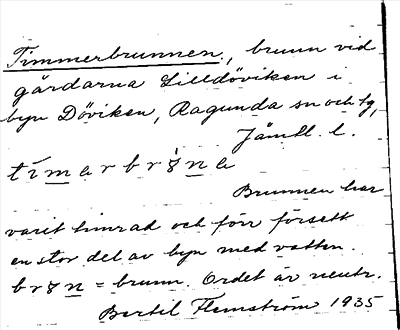 Timmerbrunnen, brunn vid
gårdarna Lilldöviken i
byn Döviken, Ragunda sn och tg,
Jämtl. l.
tímarbrṇ̀a
Brunnen har
varit timrad och förr försett
en stor del av byn med vatten.
= brunn. Ordet är neutr.
Bertil Flemström 1935